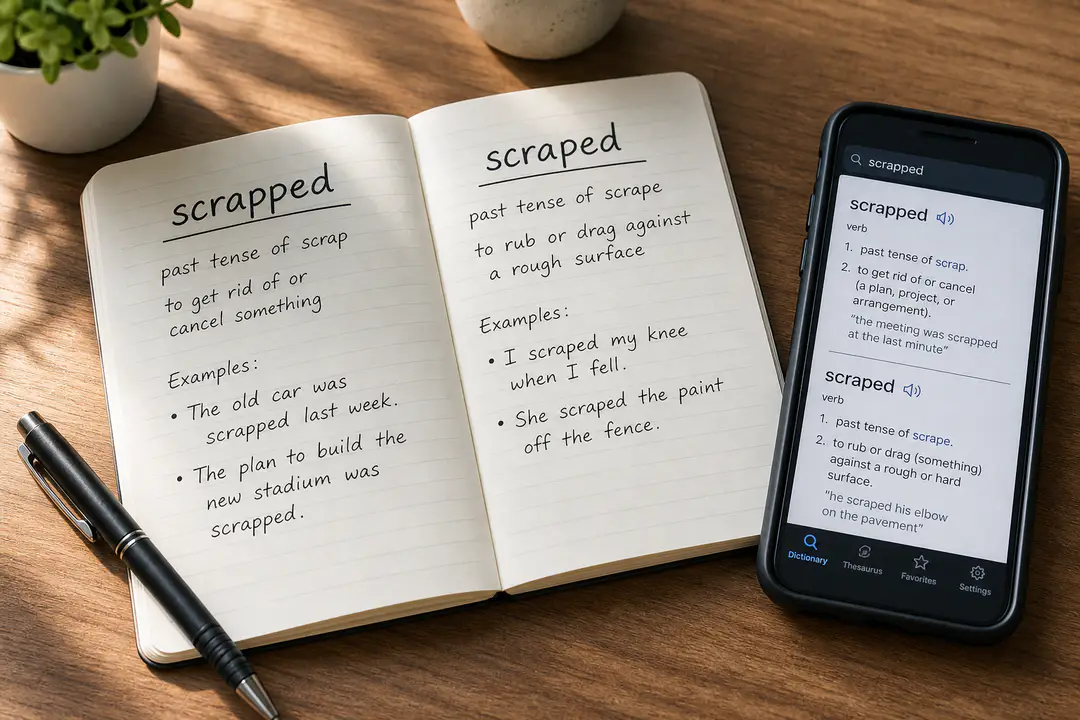 scrapped
past tense of scrap
to get rid of or
cancel something
Examples:
• The old car was
scrapped last week.
• The plan to build the
new stadium was
scrapped.
scraped
past tense of scrape
to rub or drag against
a rough surface
Examples:
• I scraped my knee
when I fell.
• She scraped the paint
off the fence.
scrapped
scrapped
verb
1. past tense of scrap.
2. to get rid of or cancel
(a plan, project, or
arrangement).
"the meeting was scrapped
at the last minute"
scraped
verb
1. past tense of scrape.
2. to rub or drag (something)
against a rough or hard
surface.
"he scraped his elbow
on the pavement"
Dictionary
Thesaurus
Favorites
Settings